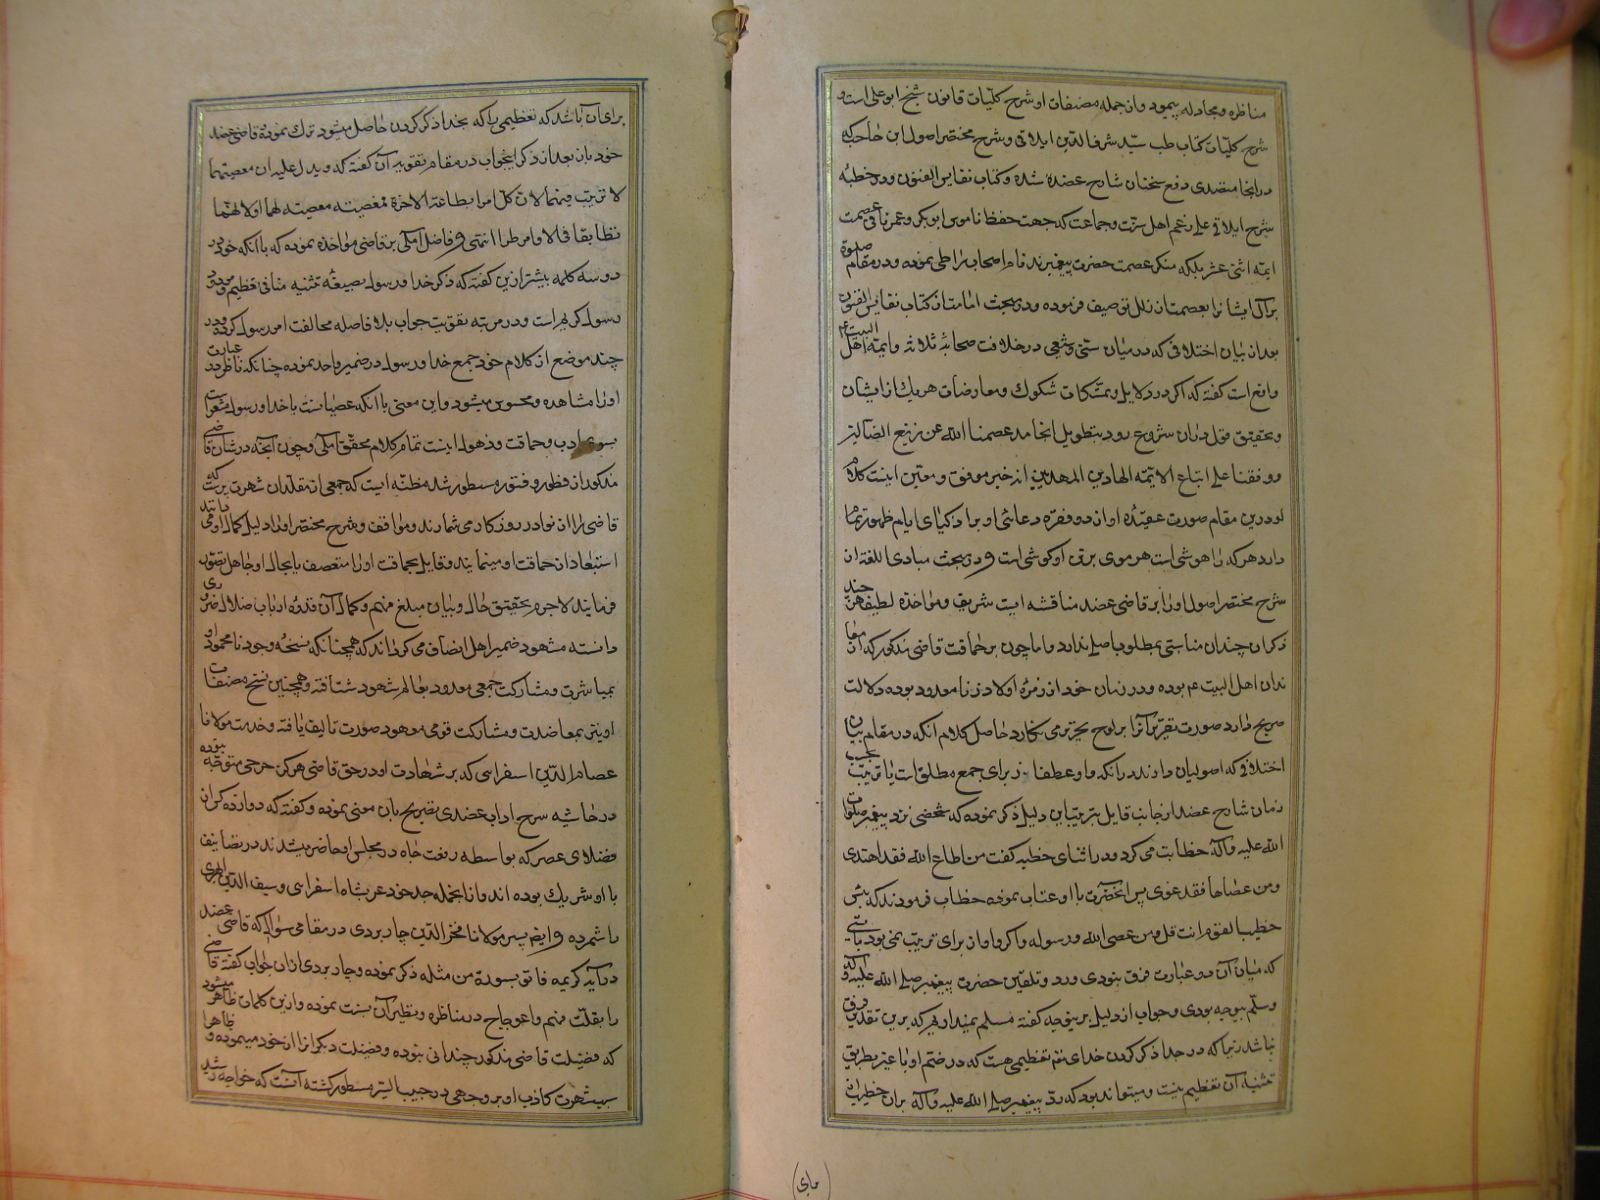 مناظره و مجادله پیمود و از جمله مصنفات او شرح کلیات قانون شیخ ابو علی است و
شرح کلیات کتاب طب سید شرف الدین ایلاقی و شرح مختصر اصول ابن حاجب که
در آنجا متصدی دفع سخنان شارح عضد شده و کتاب نفایس الفنون و در خطبه
شرح ایلاقی علی رغم اهل سنت و جماعت که جهت حفظ ناموس ابوبکر و عمر نافی عصمت
ایمه اثنی عشر بلکه منکر عصمت حضرت پیغمبرند نام اصحاب را طی نموده و در مقام صلوة
بر آل ایشانرا بعصمت از زلل توصیف فرموده و در مبحث امامت از کتاب نفایس الفنون
بعد از بیان اختلافی که در میان سنی و شیعی در خلافت صحابه ثلاثه و ایمه اهل البیت ع
واقع است گفته که اگر در دلایل و تمسکات شکوک و معارضات هر یک از ایشان
و تحقیق قول در آن شروع رود بتطویل انجامد عصمنا الله عن زیغ الضالین
و وفقنا علی اتباع الایمه الهادین المهدیین انه خیر موفق و معین اینست کلام
او در این مقام صورت عقیده او از دو فقره دعائی او بر اذکیای ایام ظهور تمام
دارد هر که را هوشی است هر موی بر تن او کوشی است و در مبحث مبادی اللغه از
شرح مختصر اصول او را بر قاضی عضد مناقشه ایست شریف و مواخذه لطیف هر چند
ذکر آن چندان مناسبتی بمطلوب اصلی ندارد و اما چون بر حماقت قاضی مذکور که از معا
ندان اهل البیت عم بوده و در زمان خود از زمره اولاد زنا معدود بوده دلالت
صریح دارد صورت تقریر آنرا بر لوح تحریر می نکارد حاصل کلام آنکه در مقام بیان
اختلافی که اصولیان دارند در آنکه واو عطف از برای جمع مطلق است یا ترتیب بحسب
زمان شارح عضد از جانب قایل بترتیب این دلیل ذکر نموده که شخصی نزد پیغمبر صلوات
الله علیه و آله خطابت می کرد و در اثنای خطبه گفت من اطاع الله فقد اهتدی
و من عصاهما فقد غوی پس آنحضرت با او عتاب نموده خطاب فرمودند که بئس
خطیب القوم انت قل و من عصی الله و رسوله و اکر واو از برای ترتیب نمی بود بایستی
که میان آن دو عبارت فرق نبودی و رد و تلقین حضرت پیغمبر صلی الله علیه و آله
و سلم بیوجه بودی و جواب از دلیل برینوجه کفته مسلم نمیداریم که برین تقدیر فرق
نباشد زیرا که در جدا ذکر کردن خدای تع تعظیمی هست که در ضم او با غیر بطریق
تثنیه آن تعظیم نیست و میتواند بود که رد پیغمبر صلی الله علیه و آله بر آن خطیب از
(مای)
برای آن باشد که تعظیمی را که بجدا ذکر کردن حاصل میشود ترک نموده قاضی عضد
خود باز بعد از ذکر اینجواب در مقام تقویه آن گفته که و یدل علیه ان معصیتهما
لا ترتیب فیهما لان کل امر بطاعة الاخر فمعصیته معصیته لهما اولا لهتما
تطابقا فی الاوامر طرا انتهی و فاضل آملی بر قاضی مؤاخذه نموده که با آنکه خود در
دو سه کلمه پیشتر ازین کفته که ذکر خدا و رسول بصیغه تثنیه منافی تعظیم و مردود
رسول کریم است و در مرتبه تقویت جواب بلا فاصله مخالفت امر رسول کرده و در
چند موضع از کلام خود جمع خدا و رسول در ضمیر واحد نموده چنانکه ناظر در عبارت
او را مشاهده و محسوس میشود و این معنی با آنکه عصیانست با خدا و رسول مشعر است
بسوء ادب و حماقت و ذهول اینست تمام کلام محقق آملی و چون آنچه در شان قاضی
مذکور از قطور و فتور مسطور شد مظنه ایست که جمعی از مقلدان شهرت پرست که
قاضی را از نوادر روزکار می شمارند و مواقف و شرح مختصر او را دلیل کمال او می دانند
استبعاد از حماقت او مینمایند و قایل بحماقت او را متعصف یا بحال او جاهل تصور
فرمایند لاجرم تحقیق حال و بیان مبلغ فهم و کمال آن قدوه ارباب ضلال ضروری
دانسته مشهود ضمیر اهل انصاف می کرداند که همچنانکه نسخه وجود نامحمود او
بمباشرت و مشارکت جمعی معدود بعالم شهود شتافته و همچنین نسخ مصنفات
او نیز بمعاضدت و مشارکت قومی معهود صورت تالیف یافته و خدمت مولانا
عصام الدین اسفراینی که بر شهادت او در حق قاضی هرکز جرحی متوجه نبوده
در حاشیه شرح اداب عضدی تصریح بآن معنی نموده و کفته که دوازده کس از
فضلای عصر که بواسطه رفعت جاه در مجلس او حاضر میشدند در تصانیف
با او شریک بوده اند و از آنجمله جد خود عربشاه اسفراینی و سیف الدین ابهری
را شمرده و ایضا پسر مولانا فخر الدین چاربردی در مقامی سؤال که قاضی عضد
در آیه کریمه فاتو بسورت من مثله ذکر نموده و چاربردی از آن جواب کفته قاضی
را بقلت فهم و اعوجاج در مناظره و نظیر آن نسبت نموده و ازین کلمات ظاهر میشود
که فضیلت قاضی مذکور چندانی نبوده و فضیلت دیکرانرا از خود مینموده و ظاهرا
سبب شهرت کاذب او بر وجهی در حبیب السیر مسطور کشته آنست که خواجه رشید